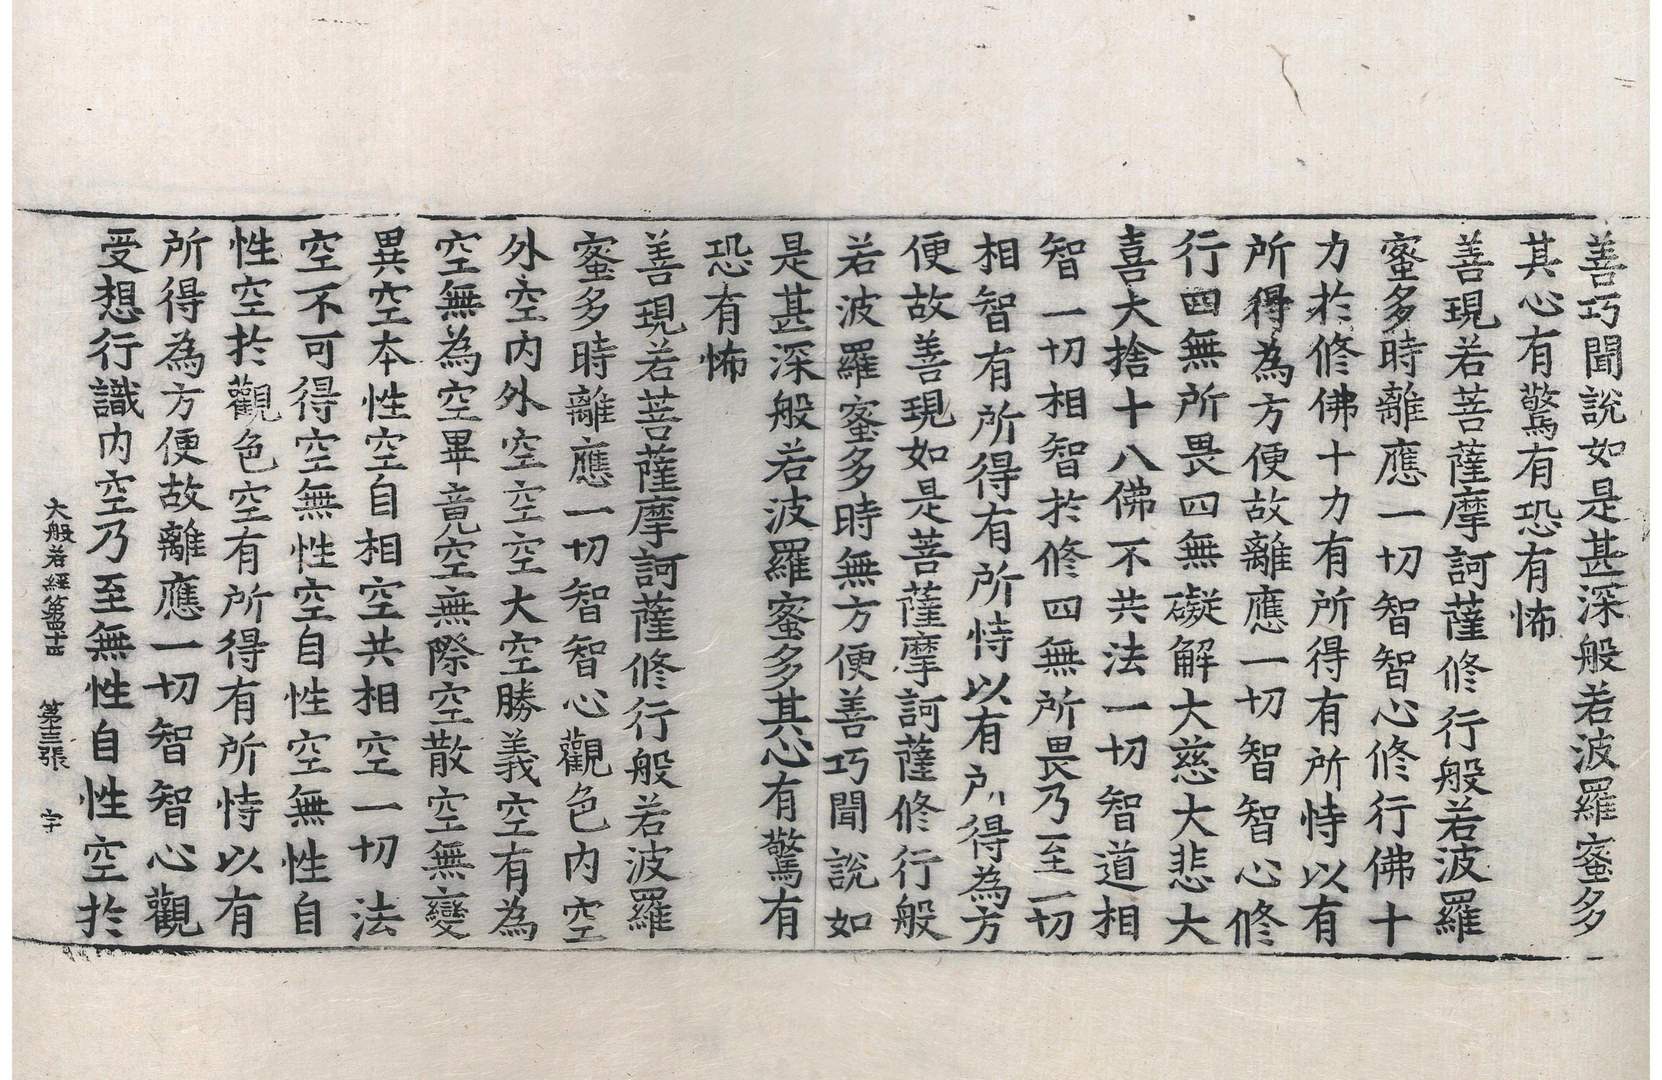 善巧聞說如是甚深般若波羅蜜多
其心有驚有恐有怖
善現若菩薩摩訶薩修行般若波羅
蜜多時離應一切智智心修行佛十
力於修佛十力有所得有所恃以有
所得為方便故離應一切智智心修
行四無所畏四無礙解大慈大悲大
喜大捨十八佛不共法一切智道相
智一切相智於修四無所畏乃至一切
相智有所得有所恃以有所得為方
便故善現如是菩薩摩訶薩修行般
若波羅蜜多時無方便善巧聞說如
是甚深般若波羅蜜多其心有驚有
恐有怖
善現若菩薩摩訶薩修行般若波羅
蜜多時離應一切智智心觀色內空
外空內外空空空大空勝義空有為
空無為空畢竟空無際空散空無變
異空本性空自相空共相空一切法
空不可得空無性空自性空無性自
性空於觀色空有所得有所恃以有
所得為方便故離應一切智智心觀
受想行識內空乃至無性自性空於
大般若經第四十四 第十三張 字